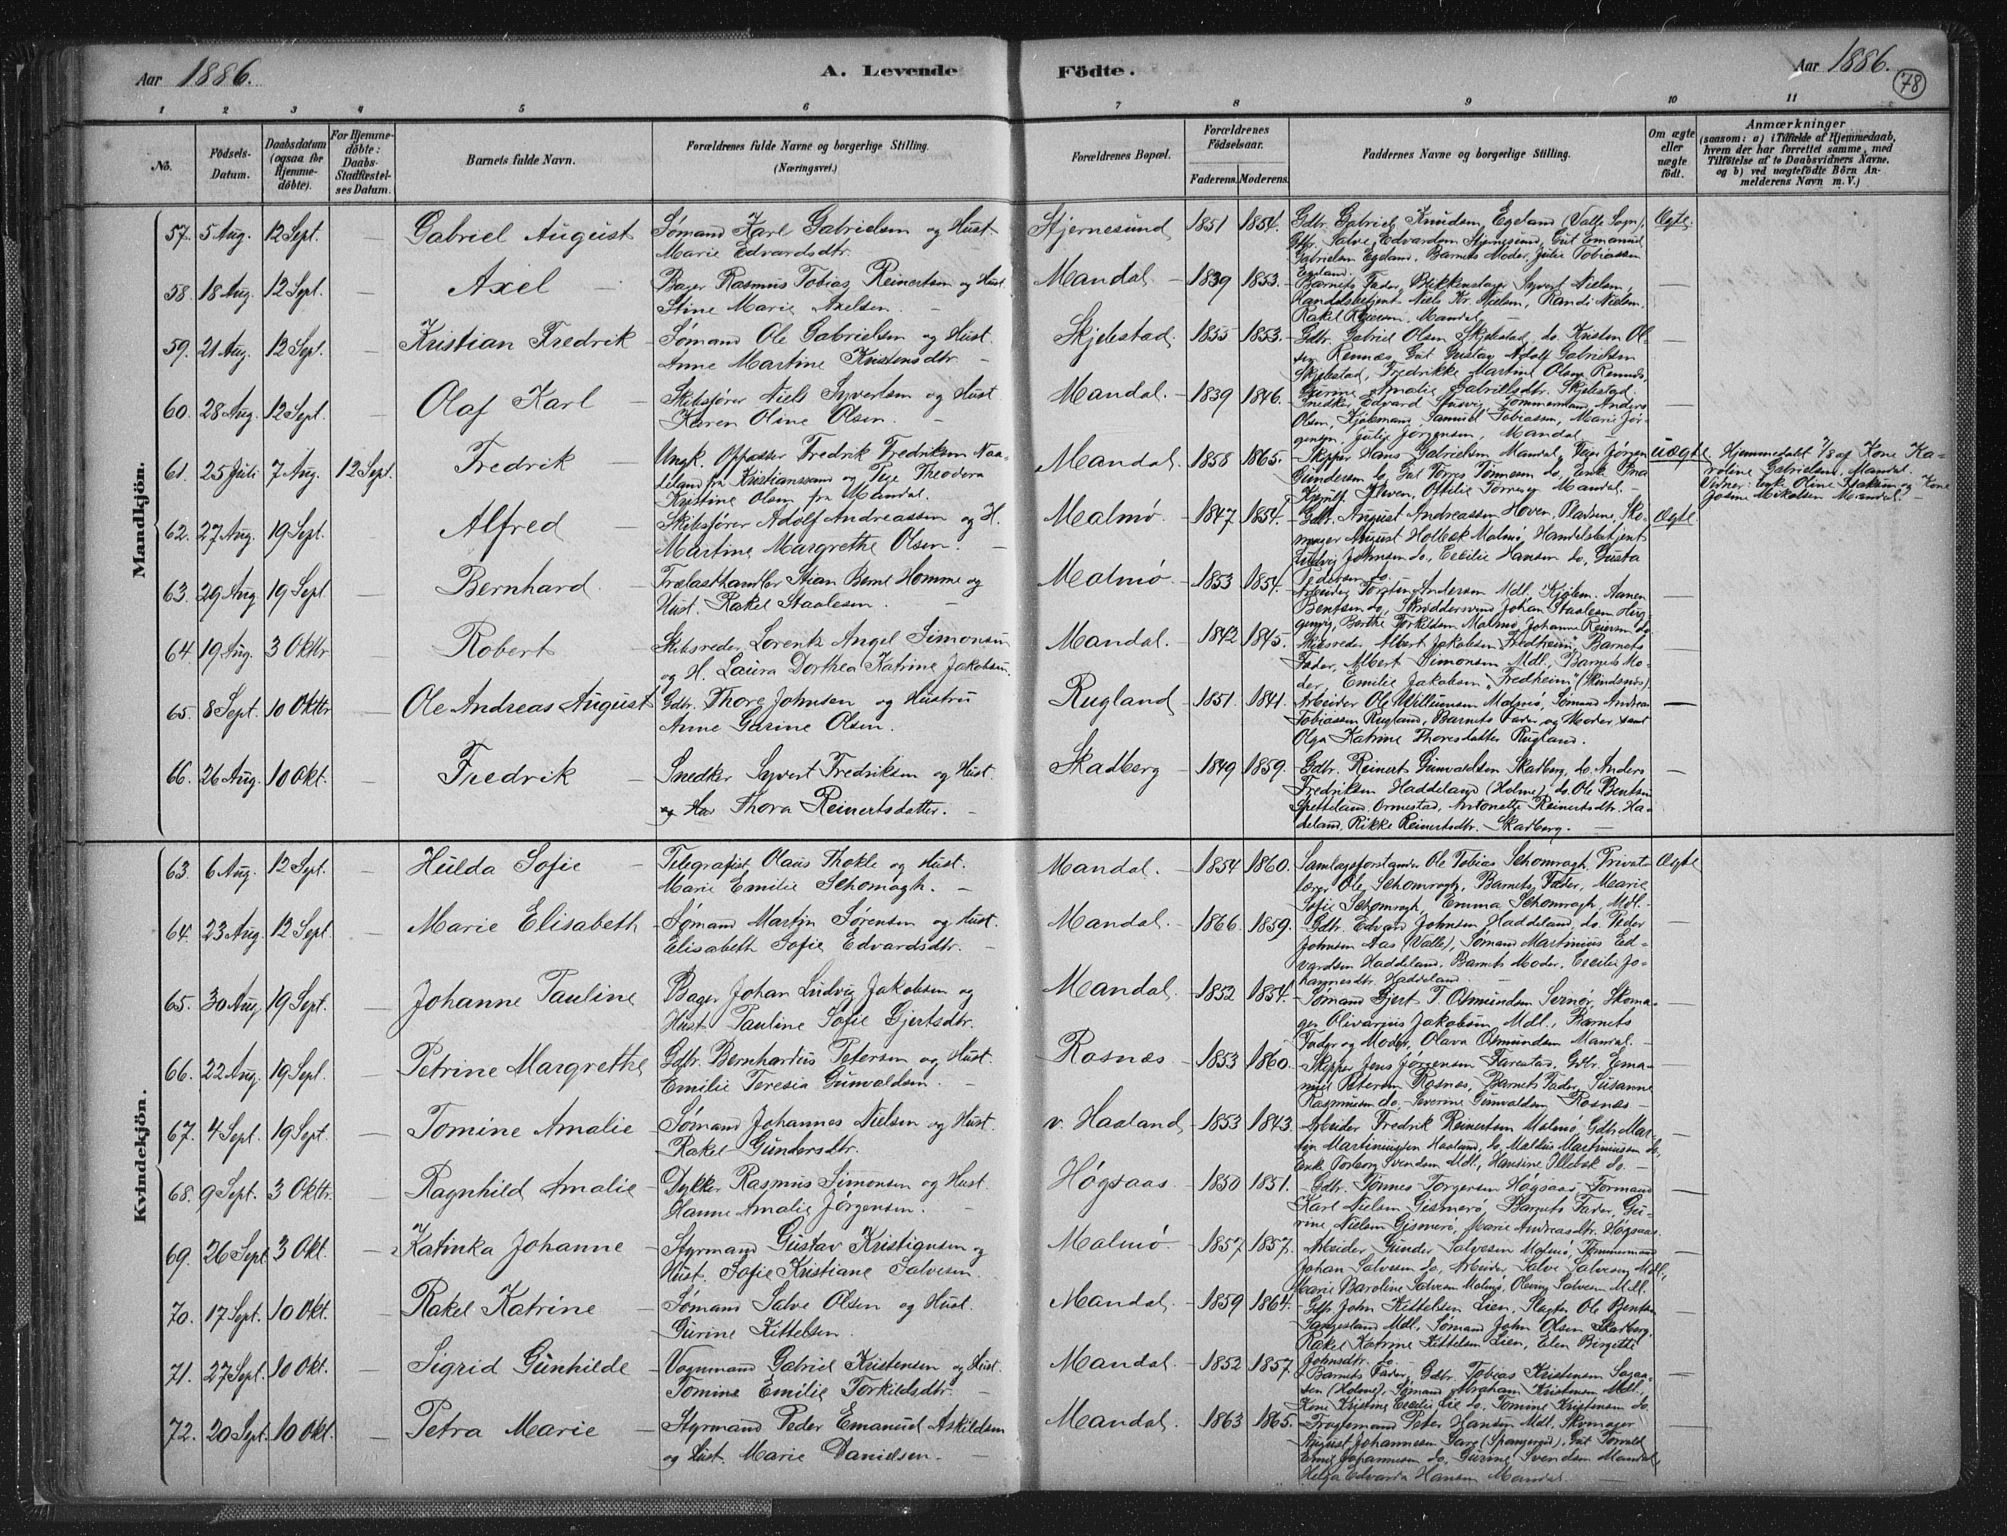 Aar 1886.
A. Levende Födte.
Aar 1886.
78
1 2 3 4 5 6 7 8 9 10 11
No.
Födsels-Datum.
Daabsdatum (ogsaa for Hjemmedöbte).
For Hjemmedöbte: Daabs-Stadfæstelses Datum.
Barnets fulde Navn.
Forældrenes fulde Navne og borgerlige Stilling. (Næringsvei.)
Forældrenes Bopæl.
Forældrenes Födselsaar.
Faderens. Moderens.
Faddernes Navne og borgerlige Stilling.
Om ægte eller uægte födt.
Anmærkninger (saasom: a) i Tilfælde af Hjemmedaab, hvem der har forrettet samme, med Tilföielse af to Daabsvidners Navne. og b) ved uægtefödte Börn Anmelderens Navn m. V.)
Mandkjön.
57. 5 Aug. 12 Sept. — Gabriel August Sømand Karl Gabrielsen og Hust. Marie Edvardsdtr. Stjernesund 1851 1854. Gdbr. Gabriel Knudsen Egeland (Valle Sogn), Gdbr. Salve Edvardsen Stjernesund, Gut Emanuel Gabrielsen Egeland, Barnets Moder, Julie Tobiassen Egeland. Ægte.
58. 18 Aug. 12 Sept. — Axel — Bager Rasmus Tobias Reinertsen og Hust. Stine Marie Axelsen. Mandal 1839 1853. Barnets Fader, Syvert Nielsen, Handelsbetjent Niels Kr. Nielsen, Randi Nielsen, Rakel Mandal —
59. 21 Aug. 12 Sept. — Kristian Fredrik — Sømand Ole Gabrielsen og Hust. Anne Martine Kristensdtr. Skjebstad. 1855 1853. Gdbr. Gabriel Olsen Skjebstad, do. Kristen Olsen Rennes, Gut Gustav Adolf Gabrielsen Skjebstad, Fredrikke Martine Olsen Gurine Amalie Gabrielsdtr. Skjebstad —
60. 28 Aug. 12 Sept. — Olaf Karl — Skibsfører Niels Syvertsen og Hust. Karen Oline Olsen. Mandal. 1839 1846. Snedker Edvard Tømmermand Anders Olsen, Samuel Tobiassen, Marie Jørgensen, Julie Jørgensen, Mandal —
61. 25 Juli 7 Aug. 12 Sept. Fredrik — Ungk. Oppasser Fredrik Fredriksen fra Kristianssand og Pige Theodora Kristine Olsen fra Mandal. Mandal 1858 1865. Skipper Hans Gabrielsen Mandal, Jørgen Gundersen do, Gut Mandal. uægte Hjemmedøbt 7/8 af Kone Karoline Gabrielsen, Mandal. Vidner: Enke Oline og Kone Josine Mikalsen Mandal. —
62. 27 Aug. 19 Sept. — Alfred — Skibsfører Adolf Andreassen og H. Martine Margrethe Olsen. Malmø. 1847 1854. Gdbr. August Andreassen Hoven, Skomager August Holbek Malmø, Handelsbetjent Ludvig Johnsen do, Cecilie Hansen do, Gusta Pedersen do. Ægte
63. 29 Aug. 19 Sept. — Bernhard Trælasthandler Stian Bent Homme og Hust. Rakel Staalesen. — Malmø 1853 1854. Arbeider Torsten Andersen Mdl., Aanen Bentsen do, Skræddersvend Johan Staalesen Berthe Torkildsen Malmø, Johanne do. —
64. 19 Aug. 3 Oktbr — Robert — Skibsreder Lorentz Angel Simonsen og H. Laura Dorthea Katrine Jakobsen. Mandal. 1842 1845. Skibsreder Albert Jakobsen "Fredheim", Barnets Fader, Albert Simonsen Mdl., Barnets Moder, Emilie Jakobsen "Fredheim" —
65. 8 Sept. 10 Oktbr — Ole Andreas August Gdbr. Thore Johnsen og Hustru Anne Garine Olsen. Rugland 1851. 1841. Arbeider Ole Willumsen Malmø, Sømand Andreas Tobiassen Rugland, Barnets Fader og Moder, samt Olga Katrine Thoresdatter Rugland. —
66. 26 Aug. 10 Okt. — Fredrik — Snedker Syvert Fredriksen og Hust. Thora Reinertsdatter. — Skadberg 1849 1859. Gdbr. Reinert Gunvaldsen Skarberg, do. Anders Fredriksen Haddeland (Holme), do. Ole Bentsen Antonette Reinertsdtr. Haddeland, Rikke Reinertsdtr. Skarberg. —
Kvindekjön.
63. 6 Aug. 12 Sept. — Hulda Sofie — Telegrafist Olaus Thokle og Hust. Marie Emilie Schomragh. — Mandal. 1854 1860. Samlagsforstander Ole Tobias Schomragh, Privatlærer Ole Schomragh, Barnets Fader, Marie Sofie Schomragh, Emma Schomragh, Mdl. Ægte
64. 23 Aug. 12 Sept. — Marie Elisabeth — Sømand Martin Sørensen og Hust. Elisabeth Sofie Edvardsdtr. — Mandal. 1866 1859. Gdbr. Edvard Johnsen Haddeland, do. Peder Johnsen Aas (Valle), Sømand Martinius Edvardsen Haddeland, Barnets Moder, Cecilie Johannesdtr Haddeland —
65. 30 Aug. 19 Sept. — Johanne Pauline Bager Johan Ludvig Jakobsen og Hust. Pauline Sofie Gjertsdtr. Mandal. 1852 1854. Sømand Gjert T. Osmundsen Skomager Olivarius Jakobsen Mdl., Barnets Fader og Moder, Olava Osmundsen Mandal. —
66. 22 Aug. 19 Sept. — Petrine Margrethe Gdbr. Bernhardus Petersen og Hust. Emilie Teresia Gunvaldsen. — Rosnæs 1853 1860. Skipper Jens Jørgensen Farestad, Gdbr. Emanuel Petersen Rosnæs, Barnets Fader, Susanne Rasmussen do. Severine Gunvaldsen Rosnæs —
67. 4 Sept. 19 Sept. — Tomine Amalie — Sømand Johannes Nielsen og Hust. Rakel Gundersdtr. v. Haaland 1853 1843. Arbeider Fredrik Reinertsen Malmø, Gdbr. Martin Martiniussen Haaland, do. Martiniussen do, Enke Svendsen Mdl., Hansine do. —
68. 9 Sept. 3 Oktbr. — Ragnhild Amalie — Dykker Rasmus Simonsen og Hust. Hanne Amalie Jørgensen. — Høgsaas 1850 1851. Gdbr. Tønnes Torgersen Høgsaas, Formand Karl Nielsen Gismerø, Barnets Fader, Gurine Nielsen Gismerø, Marie Andreasdtr. Høgsaas —
69. 26 Sept. 3 Okt. — Katinka Johanne — Styrmand Gustav Kristiansen og Hust. Sofie Kristiane Salvesen. Malmø. 1857 1857. Arbeider Gunder Salvesen Malmø, Tømmermand Johan Salvesen do, Arbeider Salve Salvesen Mdl., Marie Baroline Salvesen Malmø, Salvesen Mdl. —
70. 17 Sept. 10 Okt. — Rakel Katrine — Sømand Salve Olsen og Hust. Gurine Kittelsen. Mandal. 1859 1864. Gdbr. John Kittelsen Lien, Ole Bentsen Mdl. Sømand John Olsen Skarberg, Rakel Katrine Kittelsen Lien, Elen Birgitte Johnsdtr. do. —
71. 27 Sept. 10 Okt. — Sigrid Gunhilde — Vognmand Gabriel Kristensen og Hust. Tomine Emilie Torkildsdtr. — Mandal. 1852 1857. Barnets Fader, Gdbr. Tobias Kristensen (Holme), Sømand Abraham Kristensen Mdl., Kone Kristine Cecilie Lie do, Tomine Kristensen do. —
72. 20 Sept. 10 Okt. — Petra Marie — Styrmand Peder Emanuel Askildsen og Hust. Marie Danielsen. — Mandal. 1863 1865. Fragtemand Peter Hansen Mdl. Skomager August Johannessen Johannessen do, Gurine Svendsen Mandal, Helga Edvarda Hansen Mandal. —